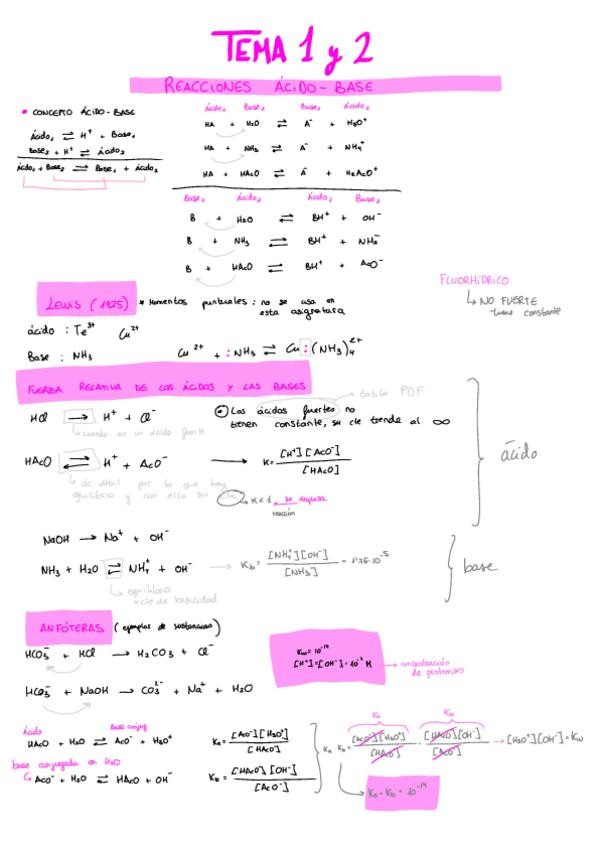 TEMA 1 y 2
REACCIONES ÁCIDO-BASE
• CONCEPTO ÁCIDO-BASE
Ácido₁ ⇌ H⁺ + Base₁
Base₂ + H⁺ ⇌ Ácido₂
Ácido₁ + Base₂ ⇌ Base₁ + Ácido₂
Ácido₁ Base₂ Base₁ Ácido₂
HA + H₂O ⇌ A⁻ + H₃O⁺
HA + NH₃ ⇌ A⁻ + NH₄⁺
HA + HAcO ⇌ A⁻ + H₂AcO⁺
Base₁ Ácido₂ Ácido₁ Base₂
B + H₂O ⇌ BH⁺ + OH⁻
B + NH₃ ⇌ BH⁺ + NH₂⁻
B + HAcO ⇌ BH⁺ + AcO⁻
FLUORHÍDRICO
↳ NO FUERTE
tiene constante
Lewis (1925) * Momentos puntuales: no se usa en
esta asignatura
ácido : Te³⁺ Cu²⁺
Base : NH₃ Cu²⁺ + :NH₃ ⇌ Cu:(NH₃)₄²⁺
FUERZA RELATIVA DE LOS ÁCIDOS Y LAS BASES
→ tabla PDF
HCl → H⁺ + Cl⁻
↳ cuando es un ácido fuerte
⊙ Los ácidos fuertes no
tienen constante, su cte tiende al ∞
HAcO ⇌ H⁺ + AcO⁻ → K = [H⁺][AcO⁻] / [HAcO]
ácido
↳ dc débil por lo que hay
equilibrio y con ello su cte
→ K<1 se desplaza
reacción
NaOH → Na⁺ + OH⁻
NH₃ + H₂O ⇌ NH₄⁺ + OH⁻ → Kb = [NH₄⁺][OH⁻] / [NH₃] = 1'76·10⁻⁵
base
↳ equilibrio
cte de basicidad
ANFÓTERAS (ejemplos de sustancias)
HCO₃⁻ + HCl → H₂CO₃ + Cl⁻
HCO₃⁻ + NaOH → CO₃²⁻ + Na⁺ + H₂O
Kw = 10⁻¹⁴
[H⁺]=[OH⁻]=10⁻⁷ M → concentración
de protones
Ácido Base conjug
HAcO + H₂O ⇌ AcO⁻ + H₃O⁺
Ka = [AcO⁻][H₃O⁺] / [HAcO]
base conjugada en H₂O
↳ AcO⁻ + H₂O ⇌ HAcO + OH⁻
Kb = [HAcO][OH⁻] / [AcO⁻]
Ka Kb
Ka · Kb = [AcO⁻][H₃O⁺] / [HAcO] · [HAcO][OH⁻] / [AcO⁻] → [H₃O⁺][OH⁻] = Kw
Ka · Kb = 10⁻¹⁴